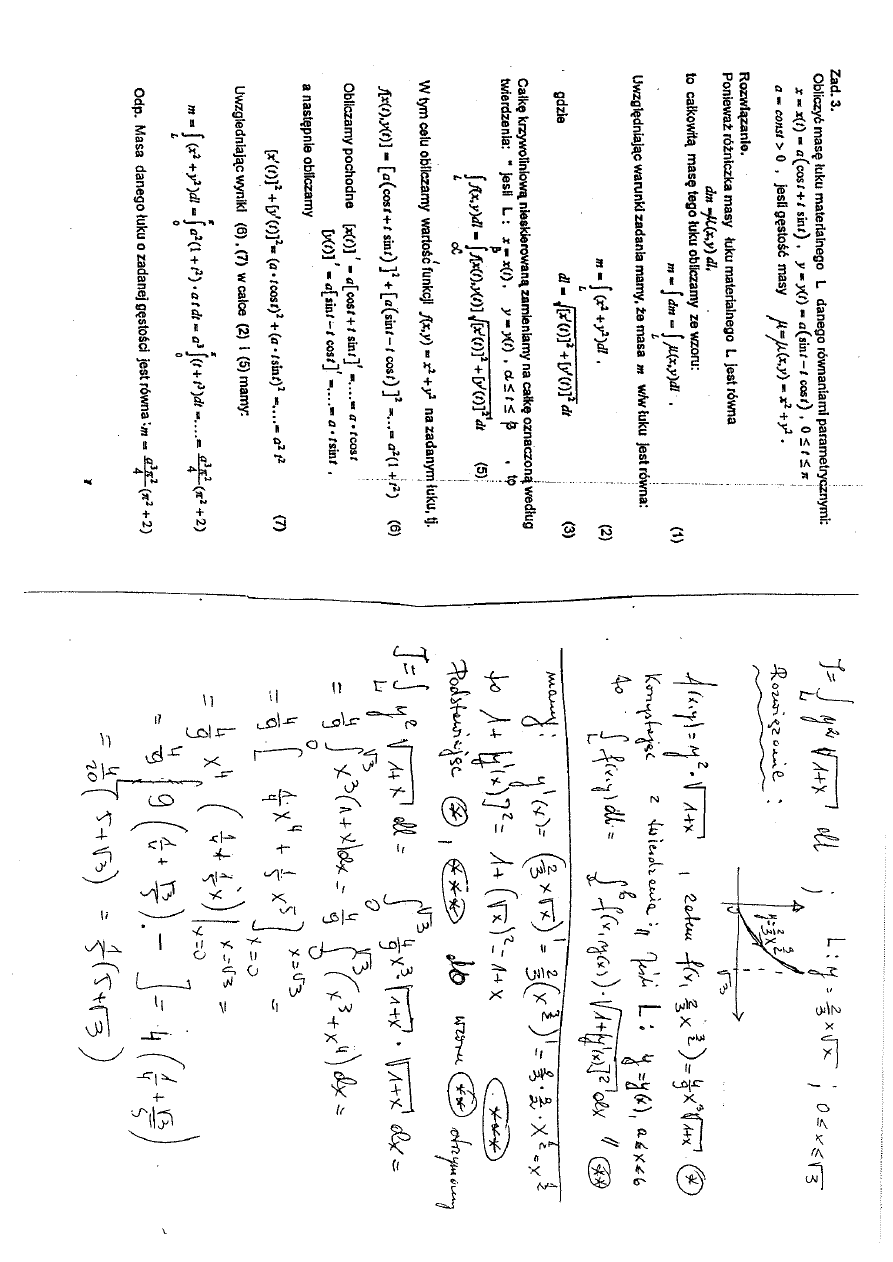 Zad. 3.
Obliczyć masę łuku materialnego L danego równaniami parametrycznymi:
x = x(t) = a(cost + t sint) , y = y(t) = a(sint − t cost) , 0 ≤ t ≤ π
a = const > 0 , jesli gęstość masy μ = μ(x,y) = x² + y² .
Rozwiązanie.
Ponieważ różniczka masy łuku materialnego L jest równa
dm = μ(x,y) dl,
to całkowitą masę tego łuku obliczamy ze wzoru:
m = ∫_L dm = ∫_L μ(x,y)dl , (1)
Uwzględniając warunki zadania mamy, że masa m w/w łuku jest równa:
m = ∫_L (x² + y²)dl , (2)
gdzie dl = √([x'(t)]² + [y'(t)]²) dt (3)
Całkę krzywoliniową nieskierowaną zamieniamy na całkę oznaczoną według
twierdzenia: " jesli L : x = x(t), y = y(t) , α ≤ t ≤ β , to
∫_L f(x,y)dl = ∫_α^β f[x(t),y(t)] √([x'(t)]² + [y'(t)]²) dt (5)
W tym celu obliczamy wartość funkcji f(x,y) = x² + y² na zadanym łuku, tj.
f[x(t),y(t)] = [a(cost + t sint)]² + [a(sint − t cost)]² =...= a²(1 + t²) (6)
Obliczamy pochodne [x(t)]' = a[cost + t sint]' =....= a • tcost
[y(t)]' = a[sint − t cost]' =....= a • tsint ,
a następnie obliczamy
[x'(t)]² + [y'(t)]² = (a • tcost)² + (a • tsint)² =....= a² t² (7)
Uwzgledniając wyniki (6) , (7) w całce (2) i (5) mamy:
m = ∫_L (x² + y²)dl = ∫_0^π a²(1 + t²) • at dt = a³ ∫_0^π (t + t³)dt =....= a³π²/4 (π² + 2)
Odp. Masa danego łuku o zadanej gęstości jest równa : m = a³π²/4 (π² + 2)
J = ∫_L y² √(1+x) dl ; L: y = 2/3 x√x ; 0 ≤ x ≤ √3
Rozwiązanie :
y = 2/3 x^(3/2)
0 √3
f(x,y) = y² · √(1+x) , zatem f(x, 2/3 x^(3/2)) = 4/9 x³ √(1+x) (*)
Korzystając z twierdzenia : " Jeśli L : y = y(x), a ≤ x ≤ b
to ∫_L f(x,y) dl = ∫_a^b f(x,y(x)) · √(1+[y'(x)]²) dx " (**)
mamy: y'(x) = (2/3 x√x)' = 2/3 (x^(3/2))' = 2/3 · 3/2 · x^(1/2) = x^(1/2)
to 1 + [y'(x)]² = 1 + (√x)² = 1 + x (***)
Podstawiając (*) , (***) do wzoru (**) otrzymamy
J = ∫_L y² √(1+x) dl = ∫_0^√3 4/9 x³ √(1+x) · √(1+x) dx =
= 4/9 ∫_0^√3 x³(1+x)dx = 4/9 ∫_0^√3 (x³ + x⁴) dx =
= 4/9 · [ 1/4 x⁴ + 1/5 x⁵ ]_x=0^x=√3 =
= 4/9 x⁴ (1/4 + 1/5 x) |_x=0^x=√3 =
= 4/9 [ 9 (1/4 + √3/5) . − ] = 4 (1/4 + √3/5)
= 4/20 (5 + √3) = 1/5 (5 + √3)